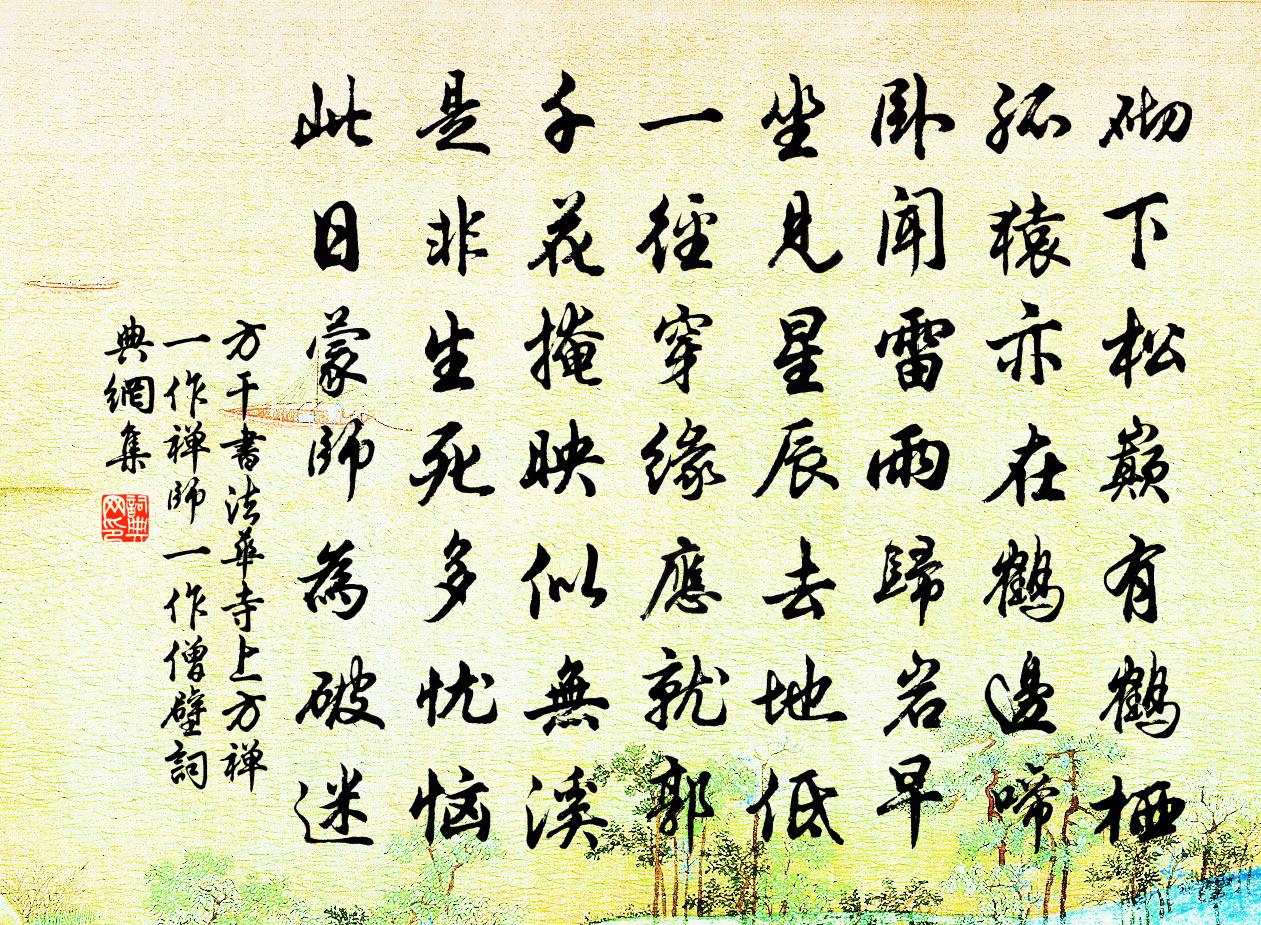 砌下松巔有鶴栖
孤猿亦在鶴邊啼
卧聞雷雨歸岩早
坐見星辰去地低
一徑穿緣應就郭
千花掩映似無溪
是非生死多忧恼
此日蒙師為破迷
方干書法華寺上方禅
一作禅師一作僧壁詞
典網集
詞典网印